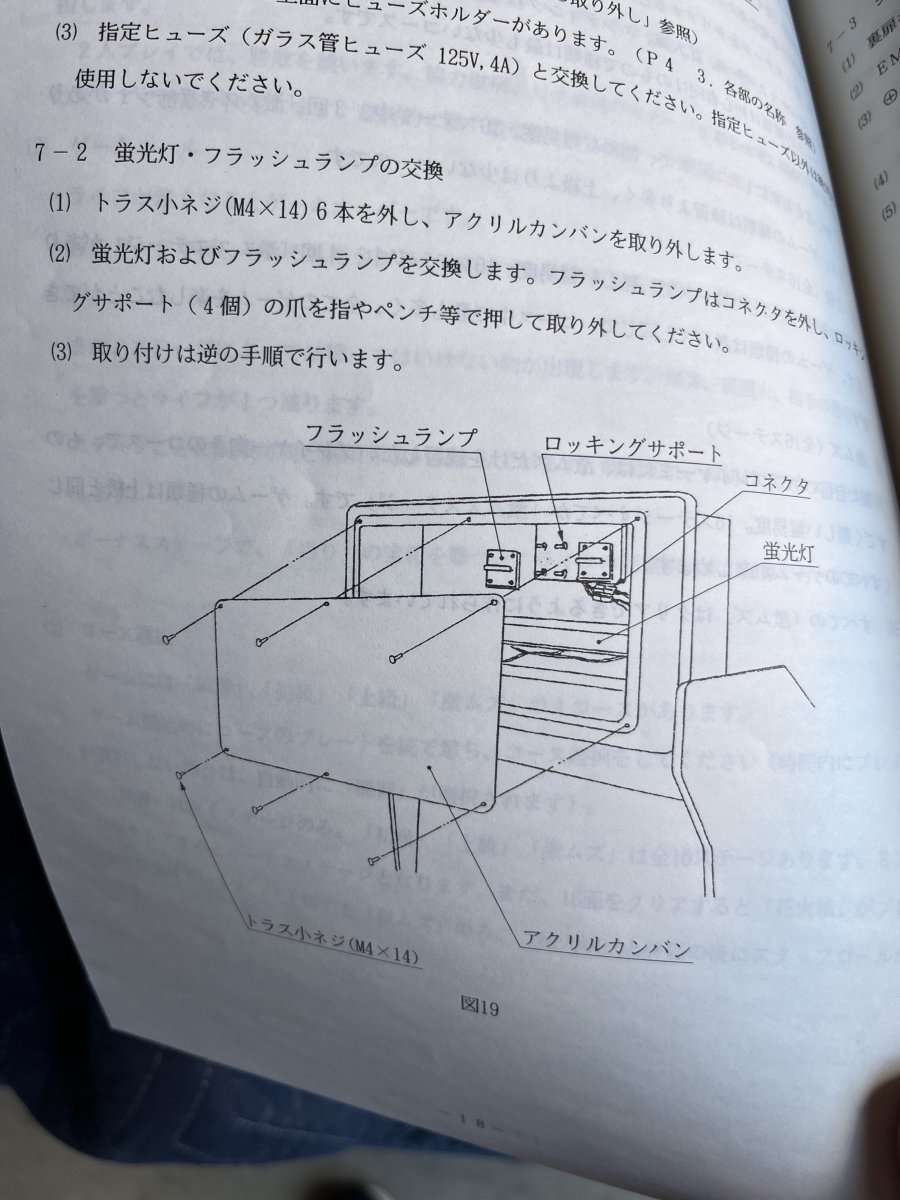 取り外し」参照)
上面にヒューズホルダーがあります。(P4 3．各部の名称 参照)
(3) 指定ヒューズ(ガラス管ヒューズ 125V,4A)と交換してください。指定ヒューズ以外は
使用しないでください。
7－2 蛍光灯・フラッシュランプの交換
(1) トラス小ネジ(M4×14)6本を外し、アクリルカンバンを取り外します。
(2) 蛍光灯およびフラッシュランプを交換します。フラッシュランプはコネクタを外し、ロッキン
グサポート(4個)の爪を指やペンチ等で押して取り外してください。
(3) 取り付けは逆の手順で行います。
フラッシュランプ
ロッキングサポート
コネクタ
蛍光灯
トラス小ネジ(M4×14)
アクリルカンバン
図19
－18－
7－3
(1) 裏扉
(2) EM
(3) ⊕
(4)
(5)